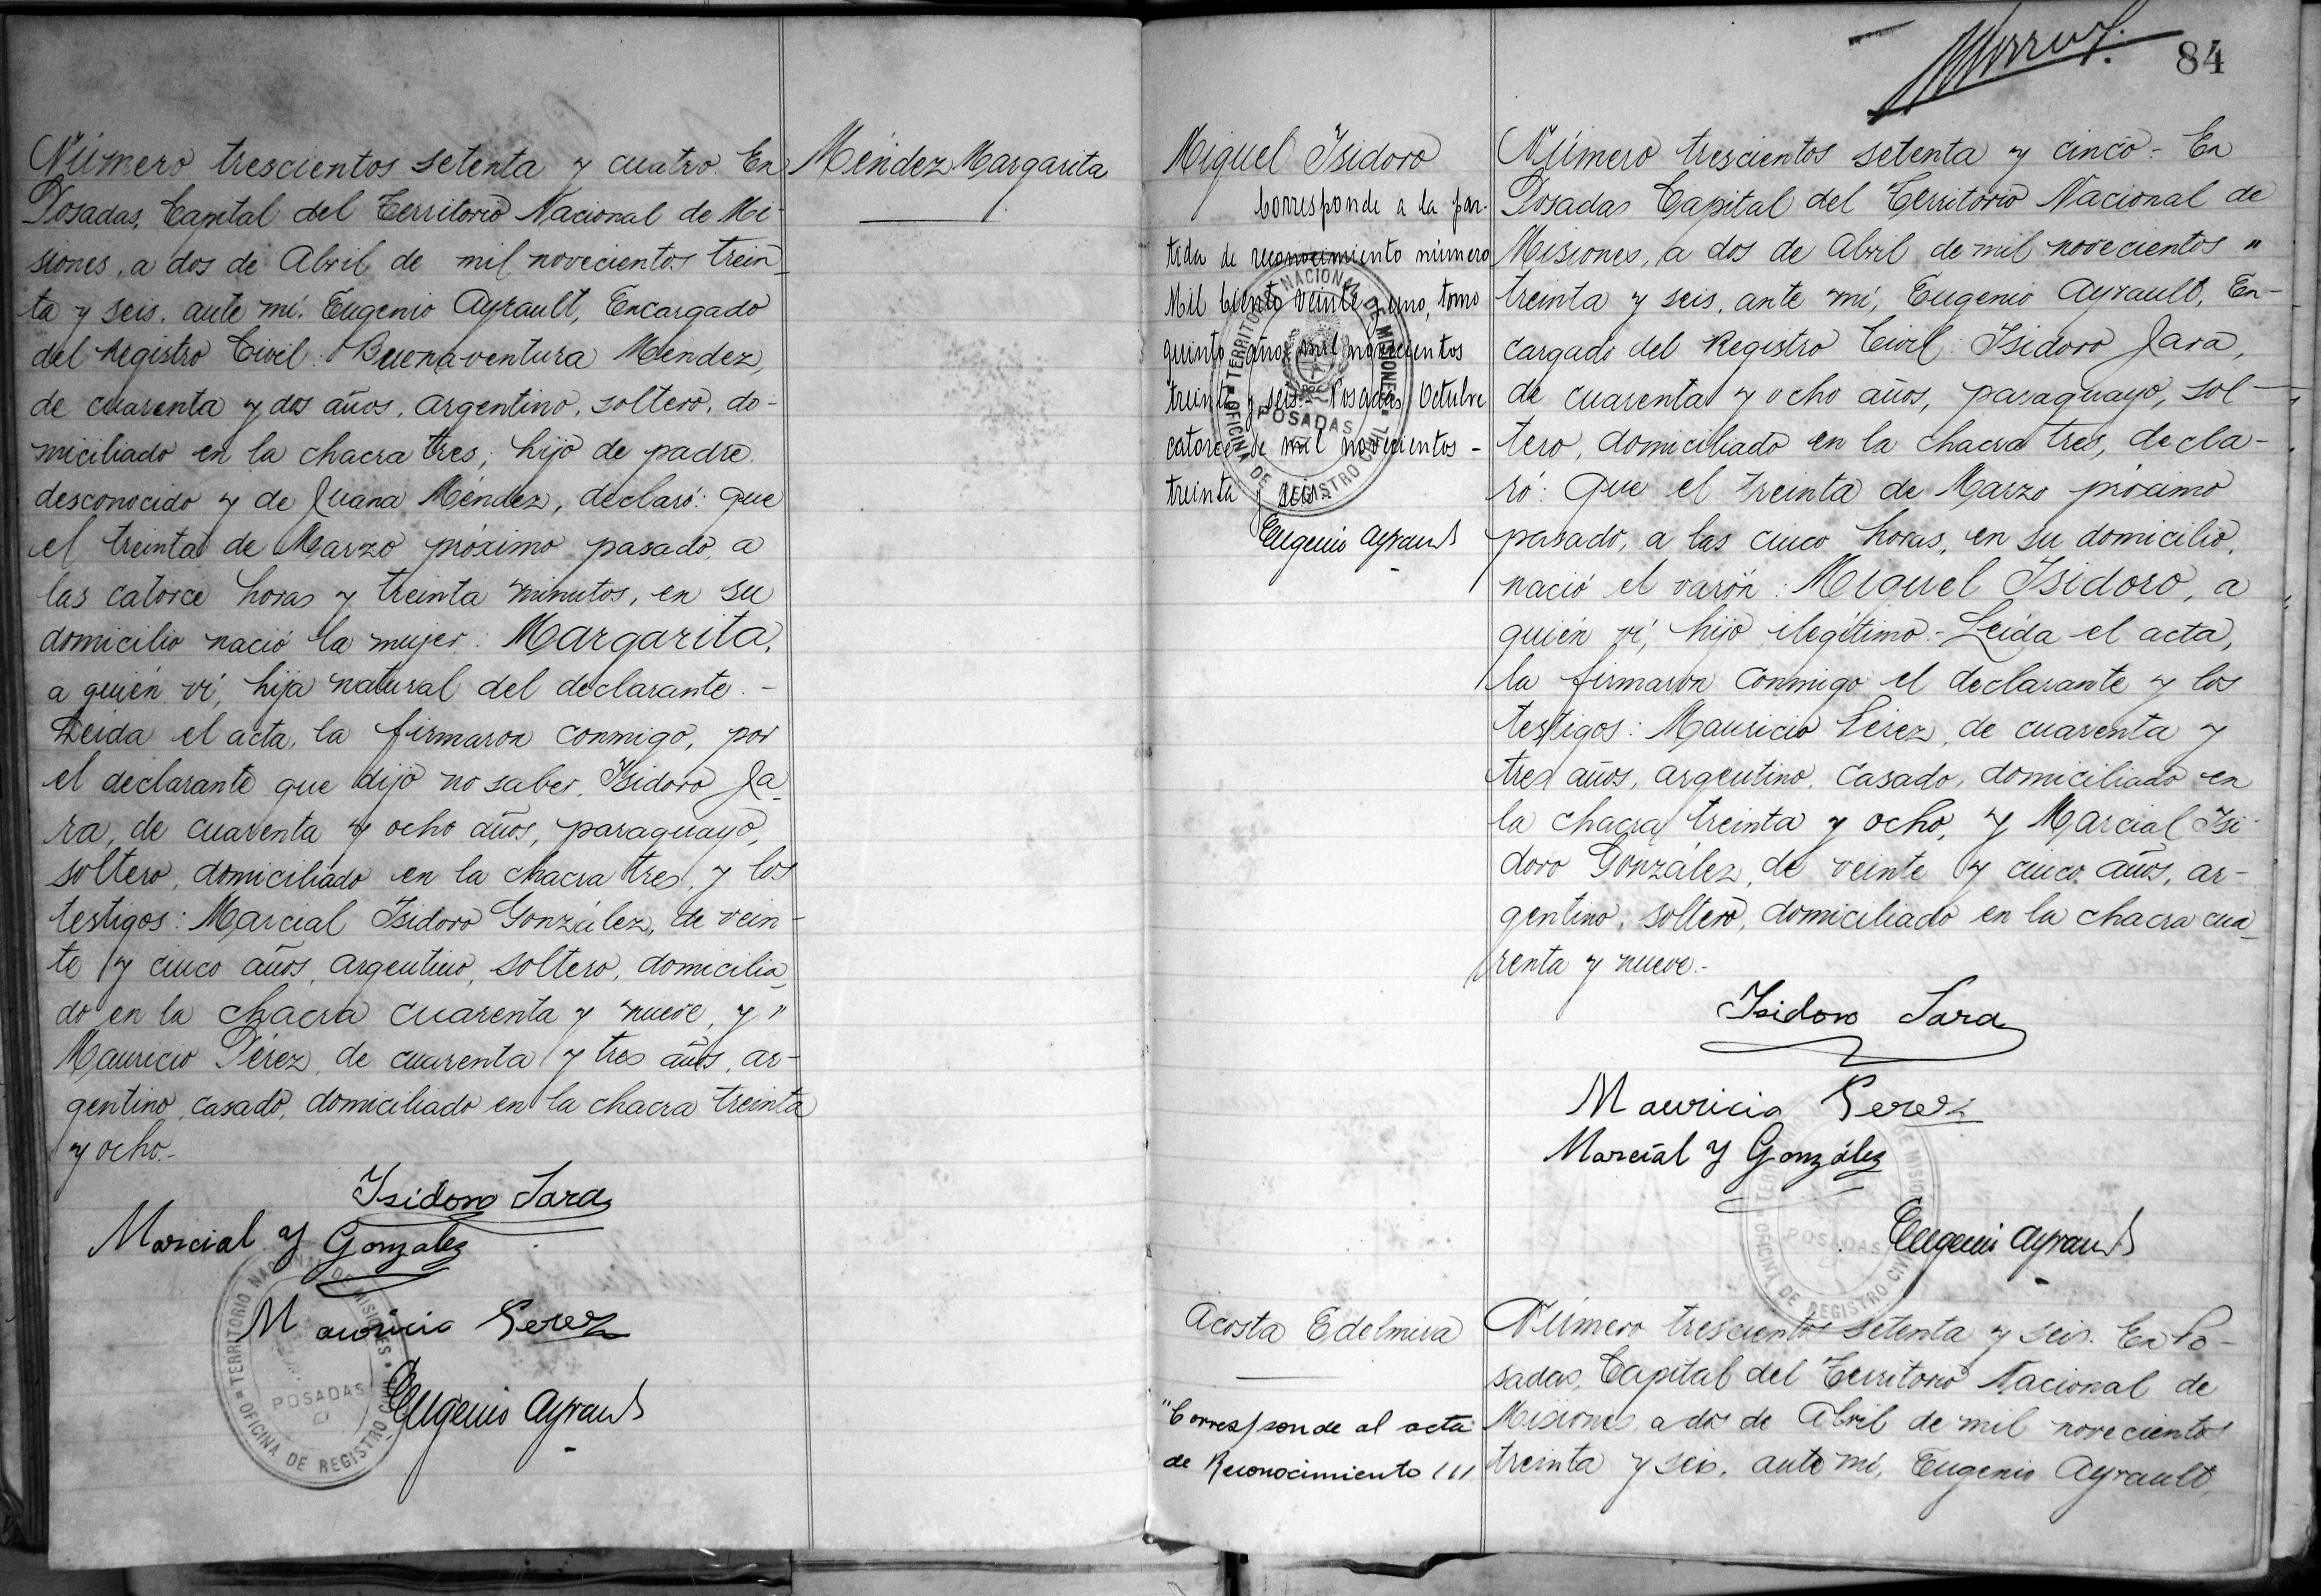 Número trescientos setenta y cuatro. En
Posadas, Capital del Territorio Nacional de Mi-
siones, a dos de Abril de mil novecientos trein-
ta y seis, ante mí. Eugenio Ayrault, Encargado
del Registro Civil: Buenaventura Méndez,
de cuarenta y dos años, argentino, soltero, do-
miciliado en la chacra tres, hijo de padre
desconocido y de Juana Méndez, declaró: que
el treinta de Marzo próximo pasado, a
las catorce horas y treinta minutos, en su
domicilio nació la mujer: Margarita,
a quién ví, hija natural del declarante.-
Leída el acta, la firmaron conmigo, por
el declarante que dijo no saber, Isidoro Ja-
ra, de cuarenta y ocho años, paraguayo,
soltero, domiciliado en la chacra tres, y los
testigos: Marcial Isidoro González, de vein-
te y cinco años, argentino, soltero, domicilia-
do en la chacra cuarenta y nueve, y "
Mauricio Pérez, de cuarenta y tres años, ar-
gentino, casado, domiciliado en la chacra treinta
y ocho.-
Isidoro Jara
Marcial Y González
Mauricio Perez
Eugenio Ayrault
TERRITORIO NACIONAL DE MISIONES
POSADAS
OFICINA DE REGISTRO CIVIL
Méndez Margarita
84
Miguel Isidoro
Corresponde a la par-
tida de reconocimiento número
Mil Ciento veinte y uno, tomo
quinto años mil novecientos
treinta y seis.- Posadas, Octubre
catorce de mil novecientos -
treinta y seis.-
Eugenio Ayrault
TERRITORIO NACIONAL DE MISIONES
POSADAS
OFICINA DE REGISTRO CIVIL
Número trescientos setenta y cinco.- En
Posadas Capital del Territorio Nacional de
Misiones, a dos de Abril de mil novecientos "
treinta y seis, ante mí, Eugenio Ayrault, En-
cargado del Registro Civil: Isidoro Jara,
de cuarenta y ocho años, paraguayo, sol-
tero, domiciliado en la chacra tres, decla-
ró: Que el treinta de Marzo próximo
pasado, a las cinco horas, en su domicilio,
nació el varón: Miguel Isidoro, a
quién ví, hijo ilegítimo.- Leída el acta,
la firmaron conmigo el declarante y los
testigos: Mauricio Pérez, de cuarenta y
tres años, argentino, casado, domiciliado en
la chacra treinta y ocho, y Marcial Isi-
doro González, de veinte y cinco años, ar-
gentino, soltero, domiciliado en la chacra cua-
renta y nueve.-
Isidoro Jara
Mauricio Perez
Marcial Y González
Eugenio Ayrault
POSADAS
OFICINA DE REGISTRO CIVIL
Acosta Edelmira
"Corresponde al acta
de Reconocimiento
Número trescientos setenta y seis. En Po-
sadas, Capital del Territorio Nacional de
Misiones, a dos de Abril de mil novecientos
treinta y seis, ante mí, Eugenio Ayrault,